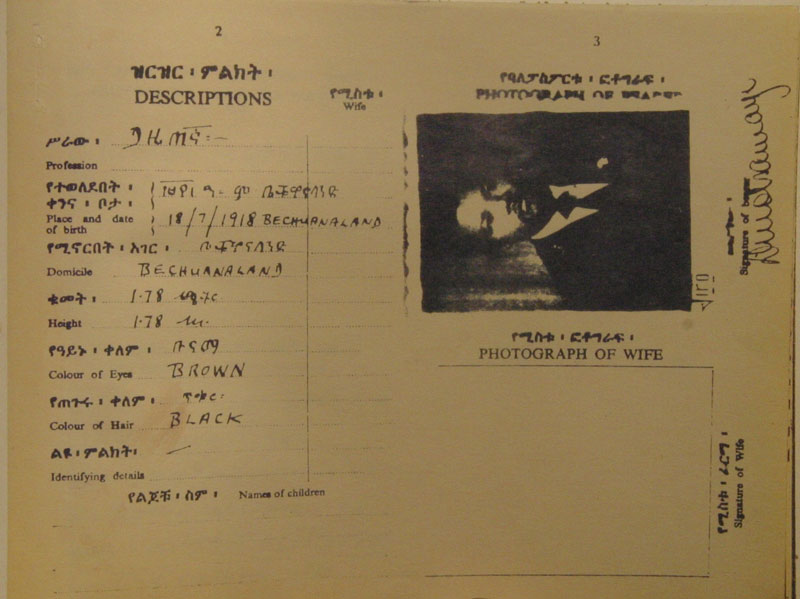 2
ዝርዝር ፡ ምልክት ፡
DESCRIPTIONS
የሚስቱ ፡
Wife
ሥራው ፡ ጋዜጠኛ
Profession
የተወለደበት ፡
ቀንና ፡ ቦታ ፡
Place and date 18/7/1918 BECHUANALAND
of birth
የሚኖርበት ፡ አገር ፡
Domicile BECHUANALAND
ቁመት ፡ 1.78 ሜትር
Height 1.78 m.
የዓይኑ ፡ ቀለም ፡ ቡናማ
Colour of Eyes BROWN
የጠጉሩ ፡ ቀለም ፡ ጥቁር
Colour of Hair BLACK
ልዩ ፡ ምልክት ፡ —
Identifying details
የልጆቹ ፡ ስም ፡ Names of children
3
የባለፓስፖርቱ ፡ ፎቶግራፍ ፡
PHOTOGRAPH OF BEARER
Signature of bearer
የሚስቱ ፡ ፎቶግራፍ ፡
PHOTOGRAPH OF WIFE
የሚስቱ ፡ ፊርማ ፡
Signature of Wife